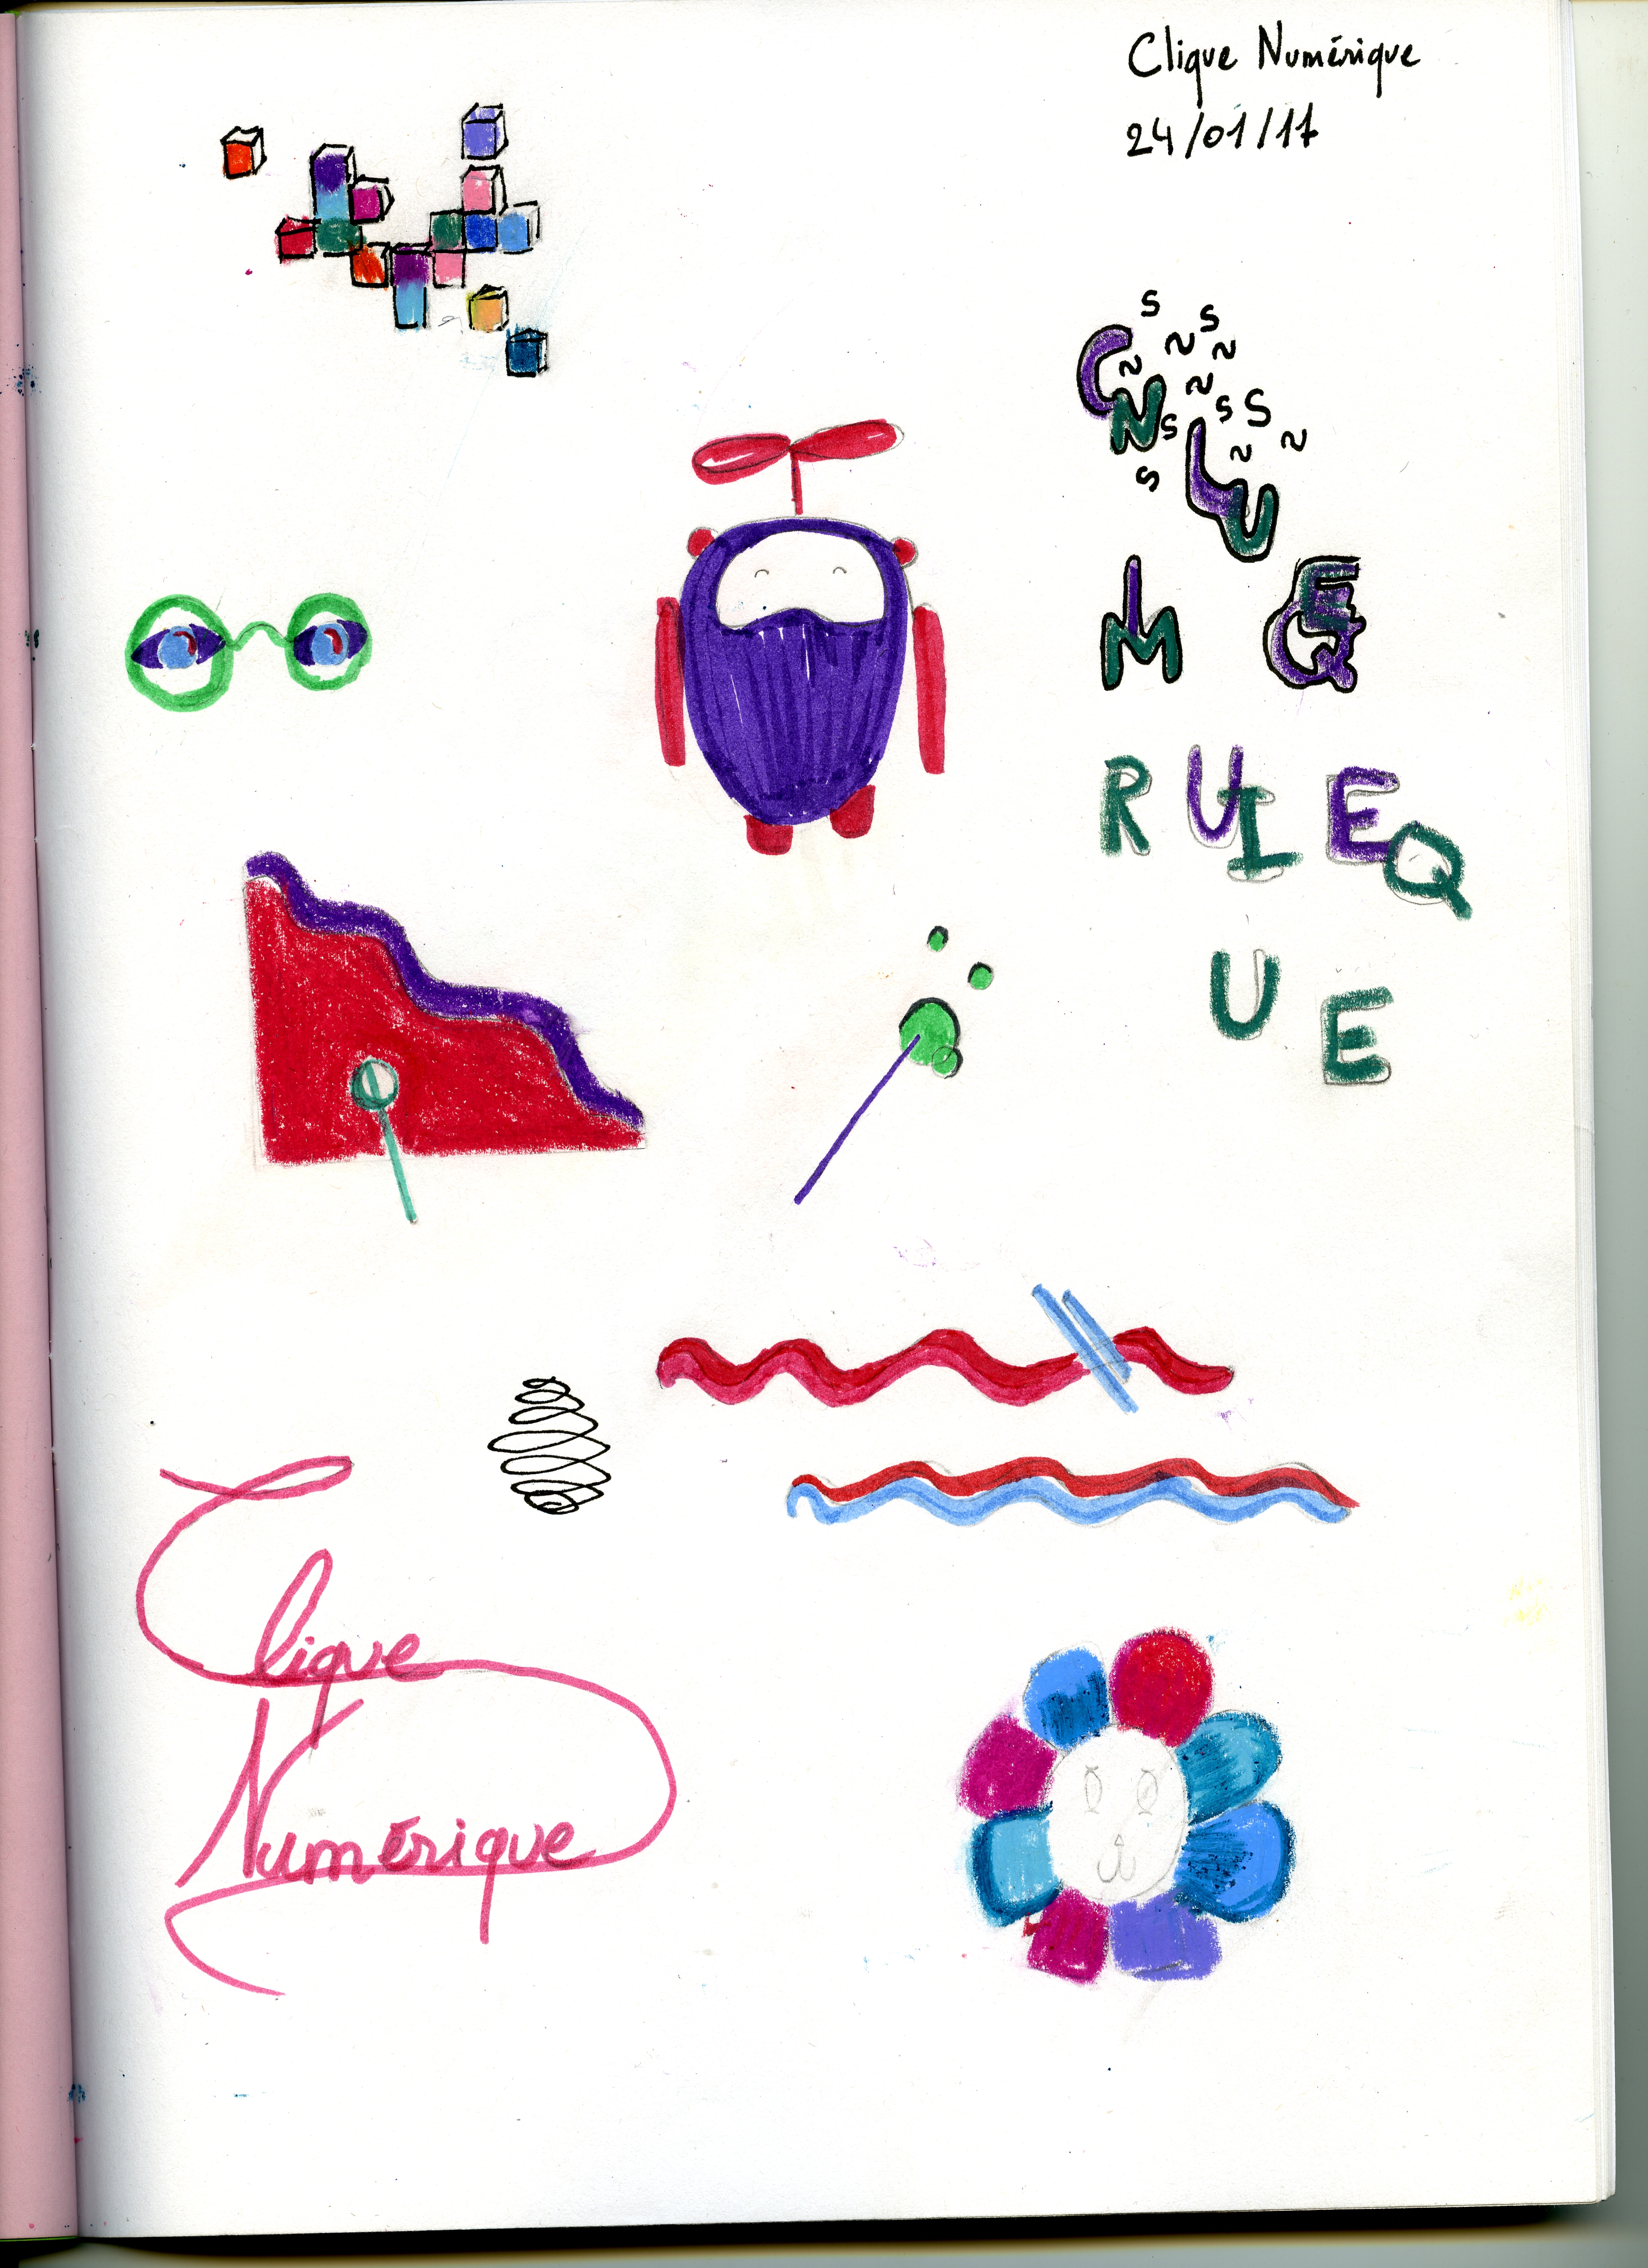 Clique Numérique
24/01/17
S
S
N
N
C
N
N
N
S
S
N
S
L
N
N
S
U
I
E
M
Q
R
U
I
E
Q
U
E
Clique
Numérique